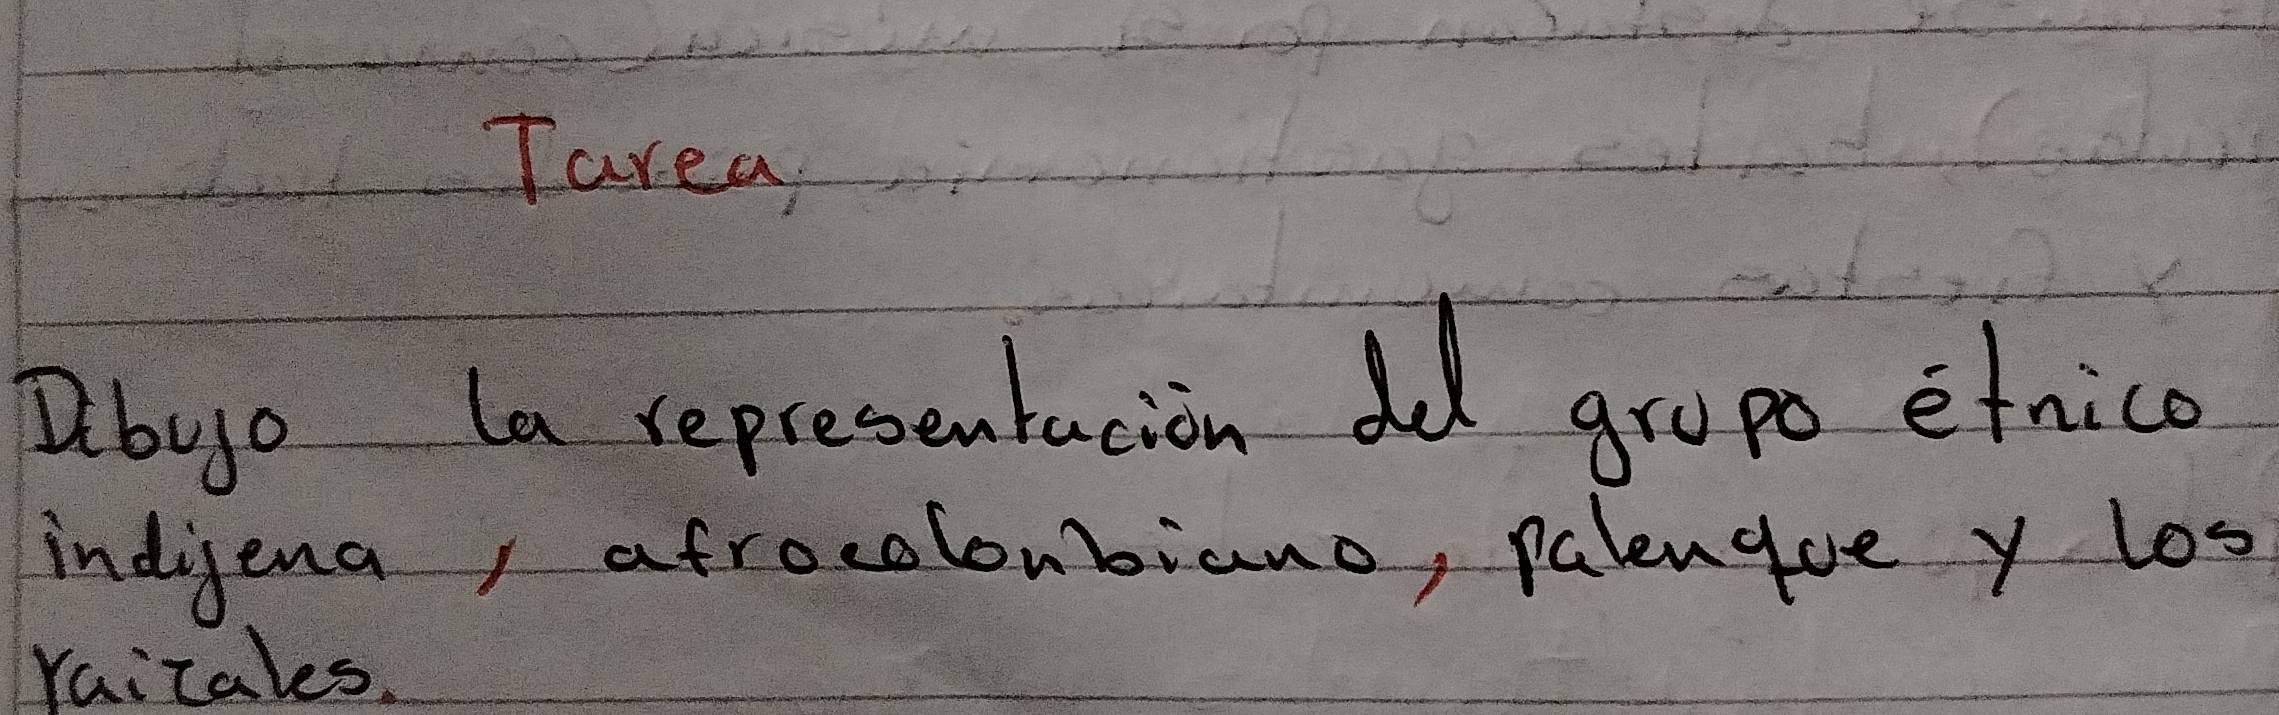 Tarea
Dibujo la representación del grupo étnico
indigena, afrocolonbiano, palenque y los
raizales.